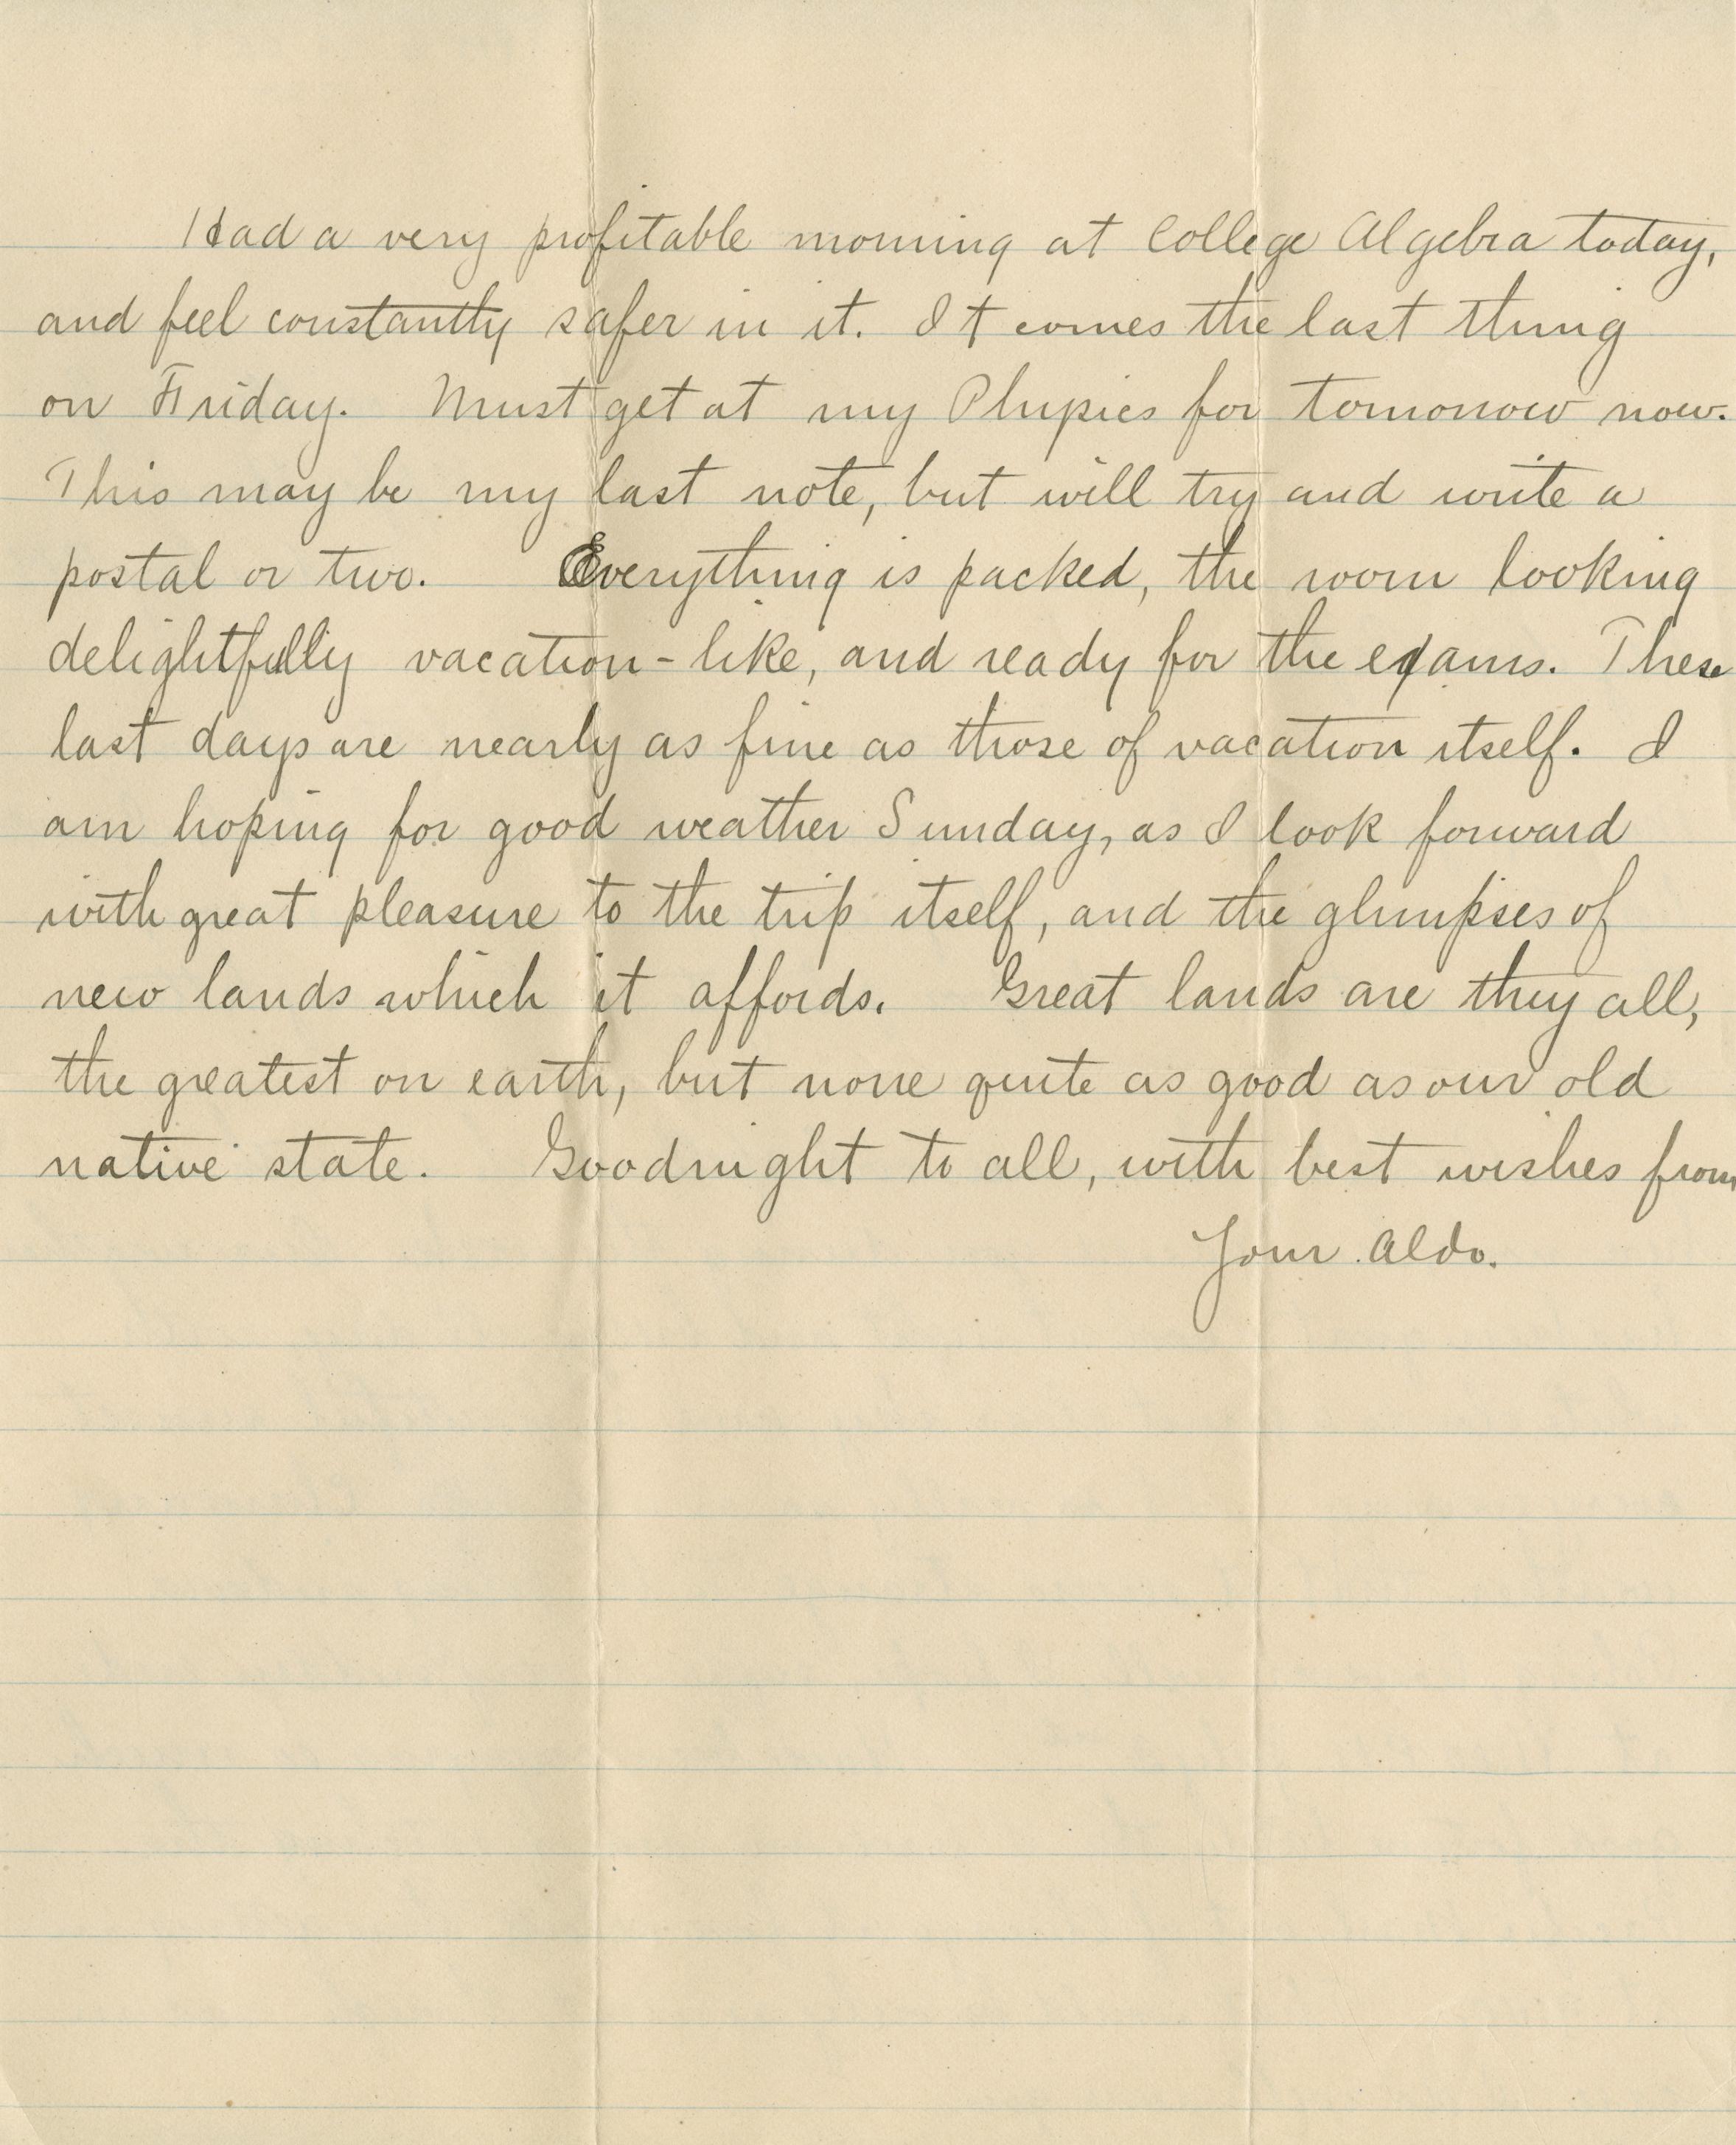 Had a very profitable morning at College Algebra today,
and feel constantly safer in it. It comes the last thing
on Friday. Must get at my Physics for tomorrow now.
This may be my last note, but will try and write a
postal or two. Everything is packed, the room looking
delightfully vacation-like, and ready for the exams. These
last days are nearly as fine as those of vacation itself. I
am hoping for good weather Sunday, as I look forward
with great pleasure to the trip itself, and the glimpses of
new lands which it affords. Great lands are they all,
the greatest on earth, but none quite as good as our old
native state. Goodnight to all, with best wishes from
Your Aldo.